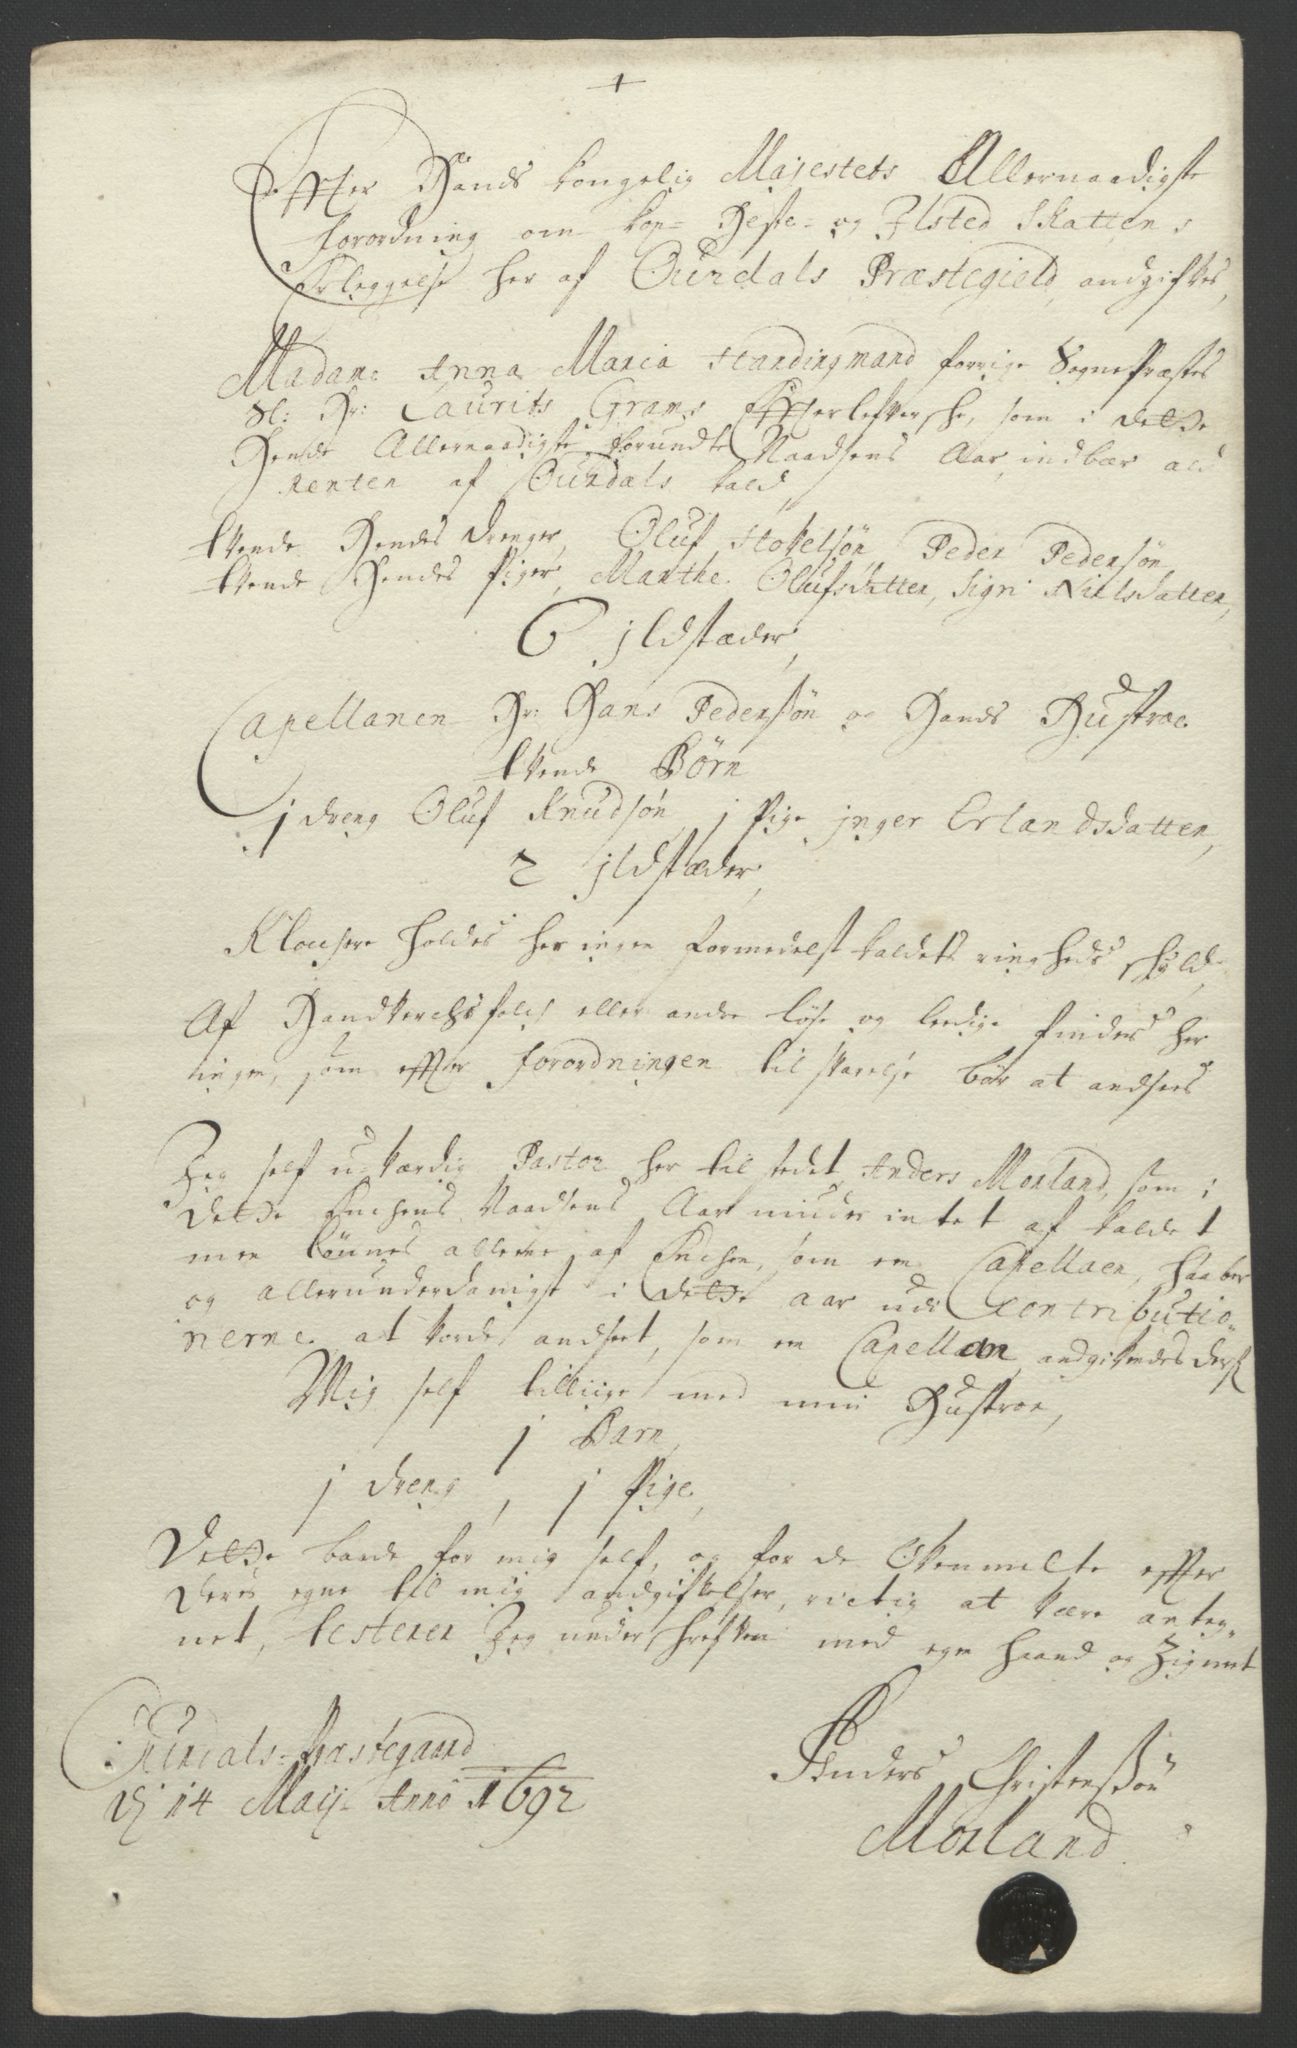 Effter Hands kongelig Majestets Allernaadigste
forordning om Kop- Heste- og Ilsted Skattens
Erleggelse her af Ourdals Præstegield andgifves,
Madam: Anna Maria Standingmand forrige Sognepræstes
Sl: Hr: Laurits Grams Effterlefverske, som i dette
Hende Allernaadigste forundte Naadsens Aar, indbær ald
Renten af Ourdals kald,
tvende Hendes drenger, Oluf Stokelsøn Peder Pedersøn,
tvende Hendes Piger, Marthe Olufsdatter, Sigri Nielsdatter,
6 jldstæder,
Capellanen Hr: Hans Pedersøn og Hands Hustroe
tvende Børn
j dreng Oluf Knudsøn, j Pige jnger Erlandsdatter,
2 jldstæder,
Klockere holdes her ingen formedelst kaldets ringheds skyld
Af Handverchsfolch eller andre løse og ledige findes her
ingen, som effter forordningen til skatelse bør at andsees
Jeg self u-værdig Pastor her til stedet Anders Morland, som i
dette Enchens Naadsens Aar niuder intet af kaldet
men lønnes allene af Enchen, som en Capellaen, haaber
og allerunderdanigst i dette aar udi Contributio-
nerne at vorde andseet, som en Capellan, andgifvendes derf
Mig self tillige med min Hustroe,
j Barn,
j dreng, j Pige,
Dette baade for mig self, og for de Ofvenmelte effter
deres egne til mig andgifvelser, rictig at være anteg-
net, testerer Jeg underskrefven med egen haand og Zignet
Ourdals Præstegaard
dj 14 Maij Anno 1692
Anders Christenssøn
Morland